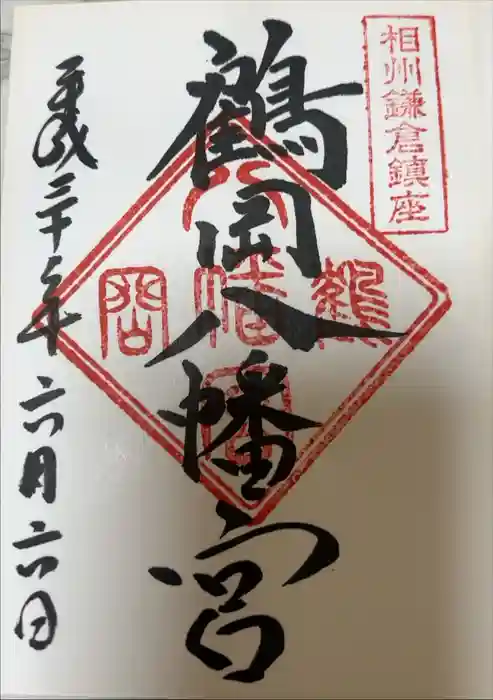 相州鎌倉鎮座
鶴岡八幡宮
平成三十年六月六日